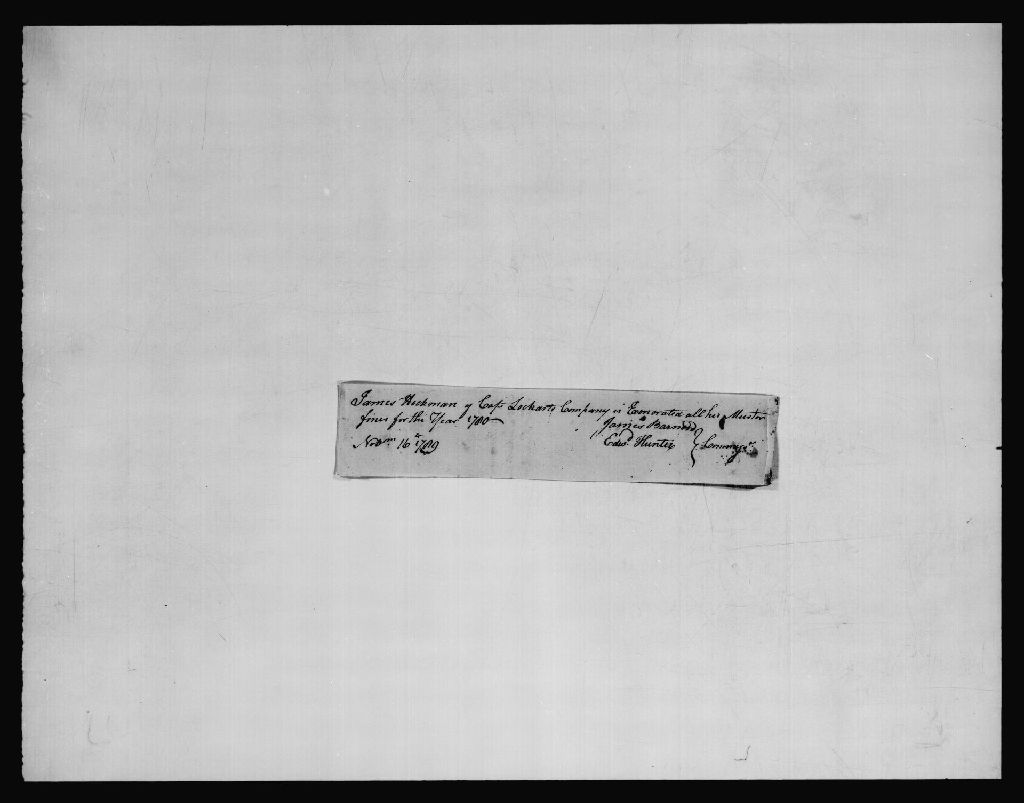 James Heckman of Capt Lockarts Company is Exonorated all his Muster
fines for the Year 1780
James Barnard
Novm 16th 1789 Edwd Hunter } Commrs